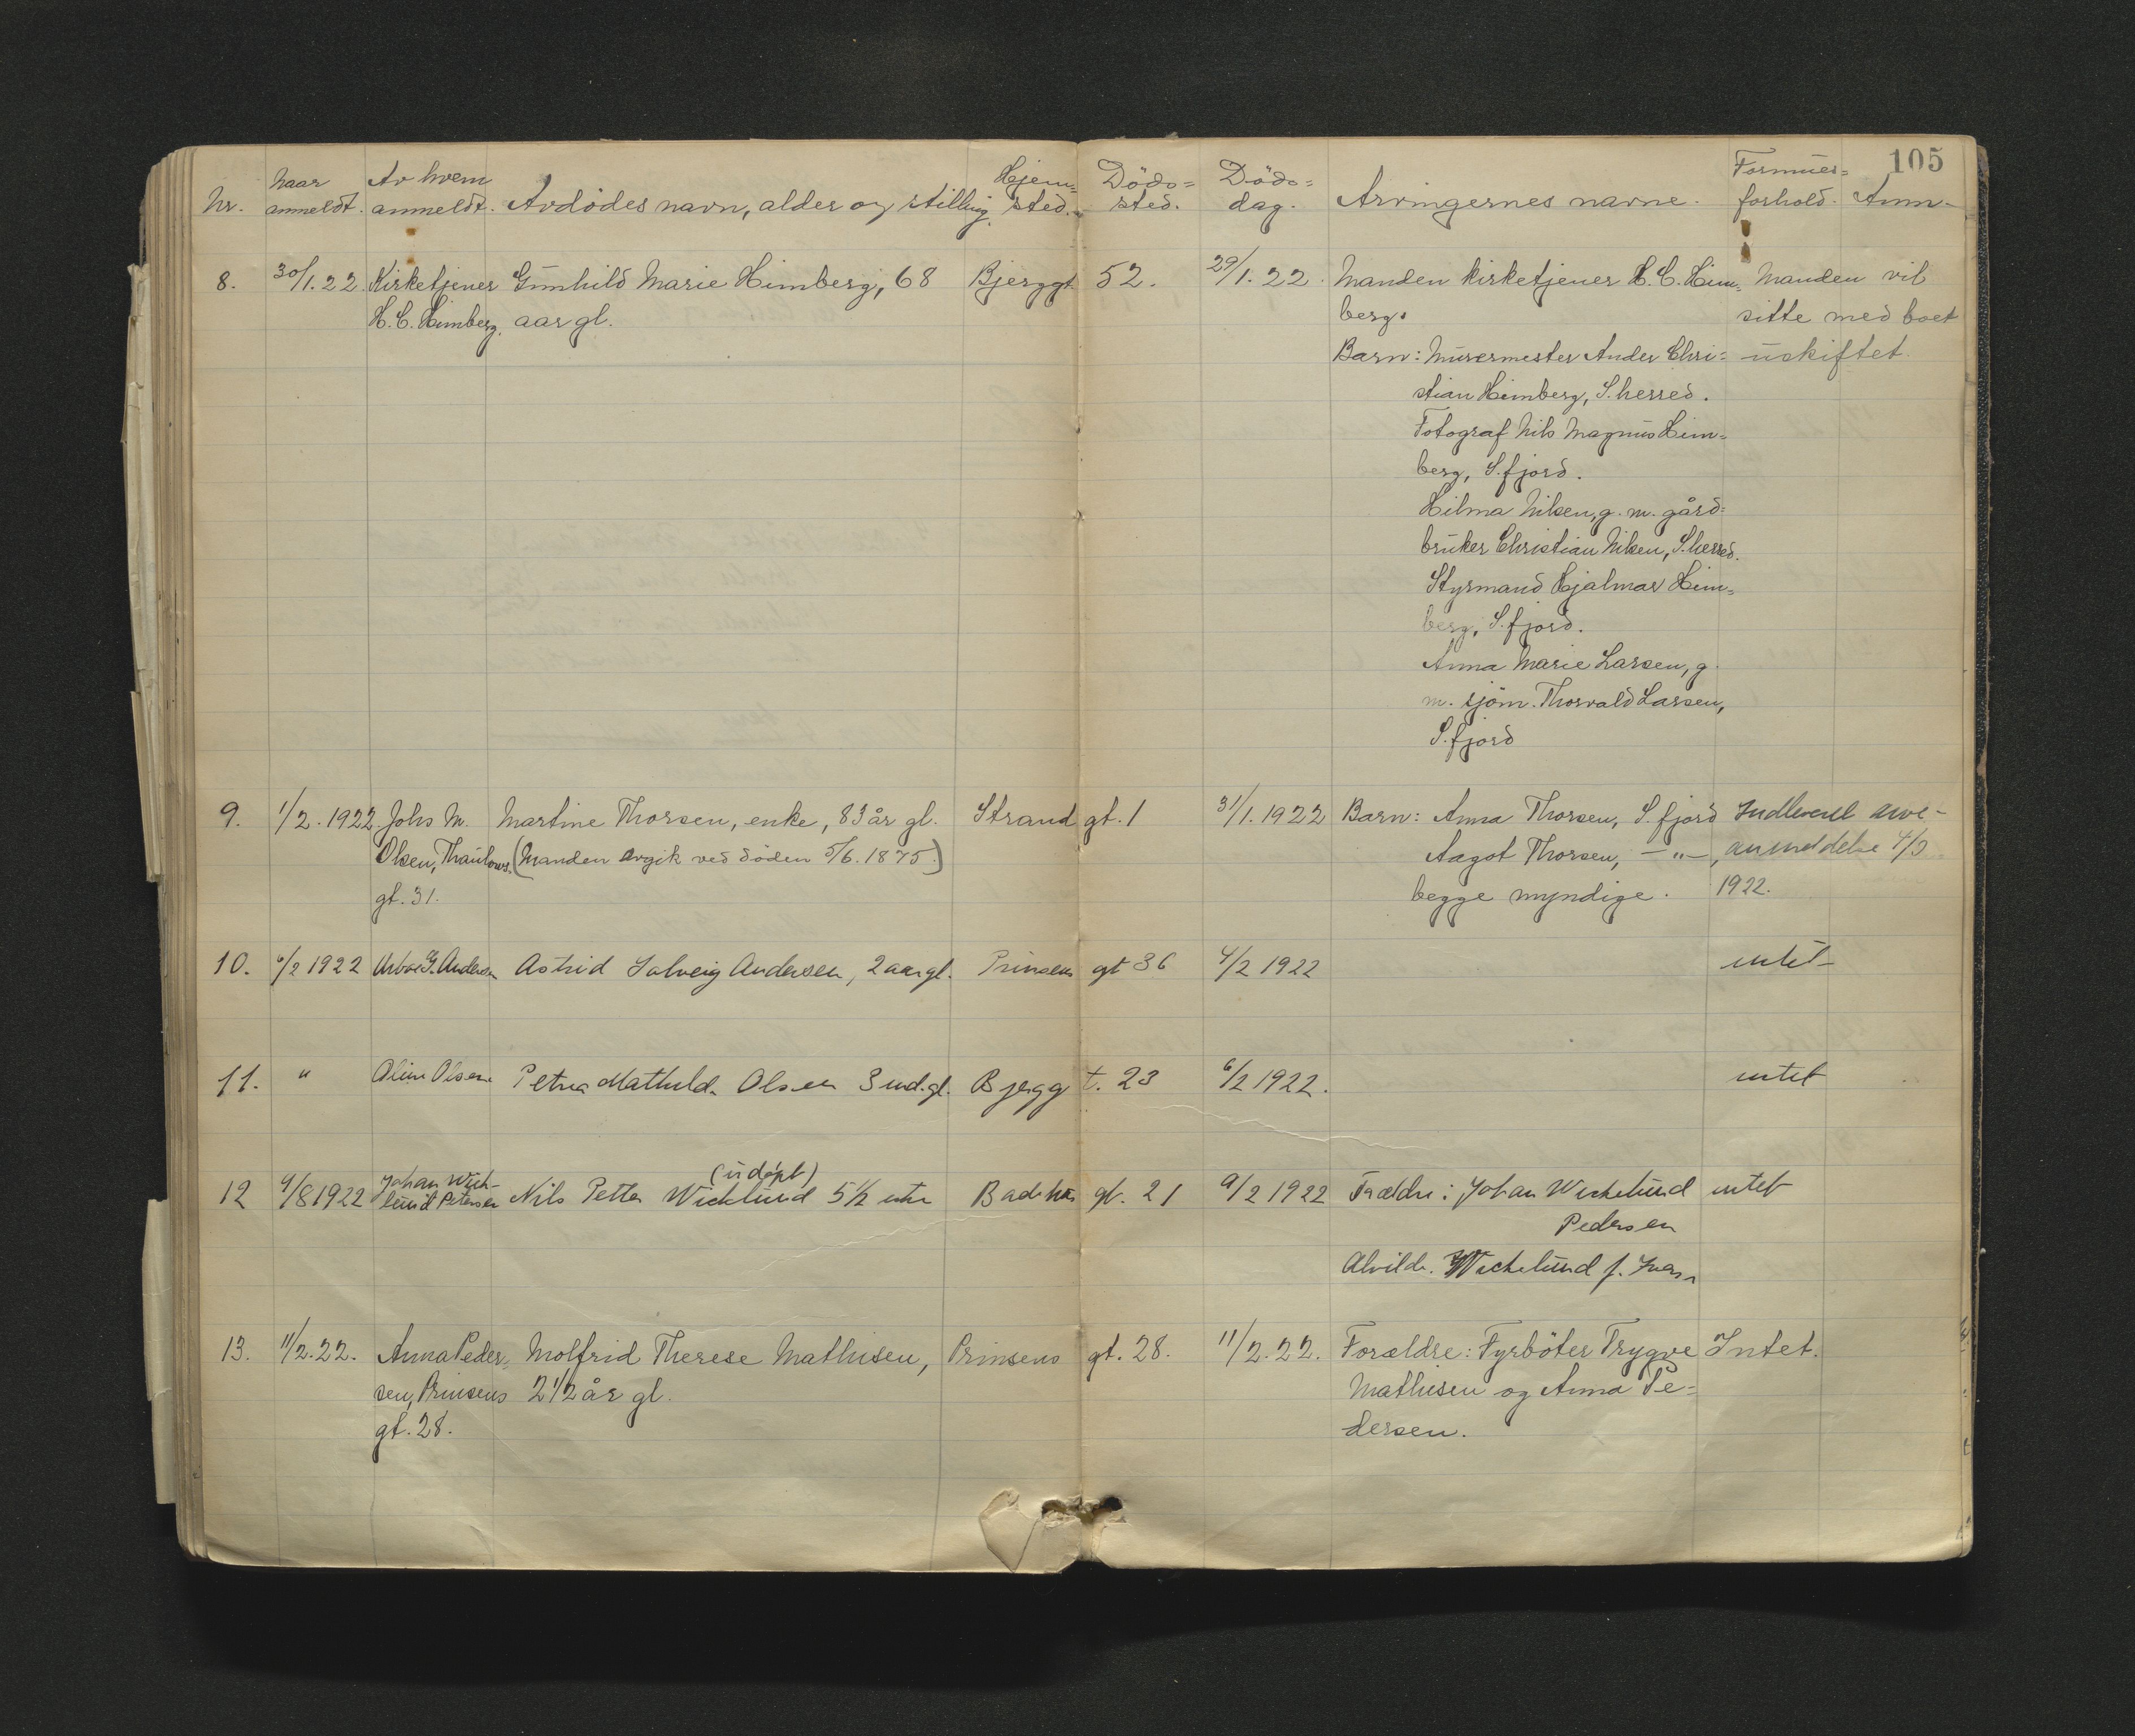 105
Nr. Naar anmeldt. Av hvem anmeldt. Avdödes navn, alder og stilling. Hjem= sted. Döds= sted. Döds= dag. Arvingernes navne. Formues= forhold. Anm-
8. 30/1.22 Kirketjener Gunhild Marie Himberg, 68 Bjerggt. 52. 29/1.22. Manden kirketjener H. C. Him= Manden vil
H. C. Himberg. aar gl. berg. sitte med boet
Barn: Murermester Ander Chri= uskiftet.
stian Himberg, S. herred.
Fotograf Nils Magnus Him=
berg, S. fjord.
Hilma Nilsen, g. m. gård=
bruker Christian Nilsen, S. herred.
Styrmand Hjalmar Him=
berg, S. fjord.
Anna Marie Larsen, g.
m. sjöm. Thorvald Larsen,
S. fjord
9. 1/2.1922 Johs M. Martine Thorsen, enke, 83 år gl. Strand gt. 1 31/1.1922 Barn: Anna Thorsen, S. fjord Indlevert arve-
Olsen, Thaulows. (Manden avgik ved döden 5/6.1875.) Aagot Thorsen, —"—, anmeldelse 4/3
gt. 31. begge myndige. 1922.
10. 6/2 1922 G. Andersen Astrid Solveig Andersen, 2 aar gl. Prinsens gt 36 4/2 1922 intet
11. " Olsen Petra Mathilde Olsen 3 md. gl. Bjergg t. 23 6/2 1922. intet
12 9/8 1922 Johan Wick- (udöpt)
lund Petersen Nils Petter Wicklund 5 1/2 Badhus gt. 21 9/2 1922 Forældre: Johan Wickelund intet
Pedersen
Alvilde. Wickelund f.
13. 11/2.22. Anna Peder= Molfrid Therese Mathisen, Prinsens gt. 28. 11/2.22. Forældre: Fyrböter Trygve Intet.
sen, Prinsens 2 1/2 år gl. Mathisen og Anna Pe=
gt. 28. dersen.